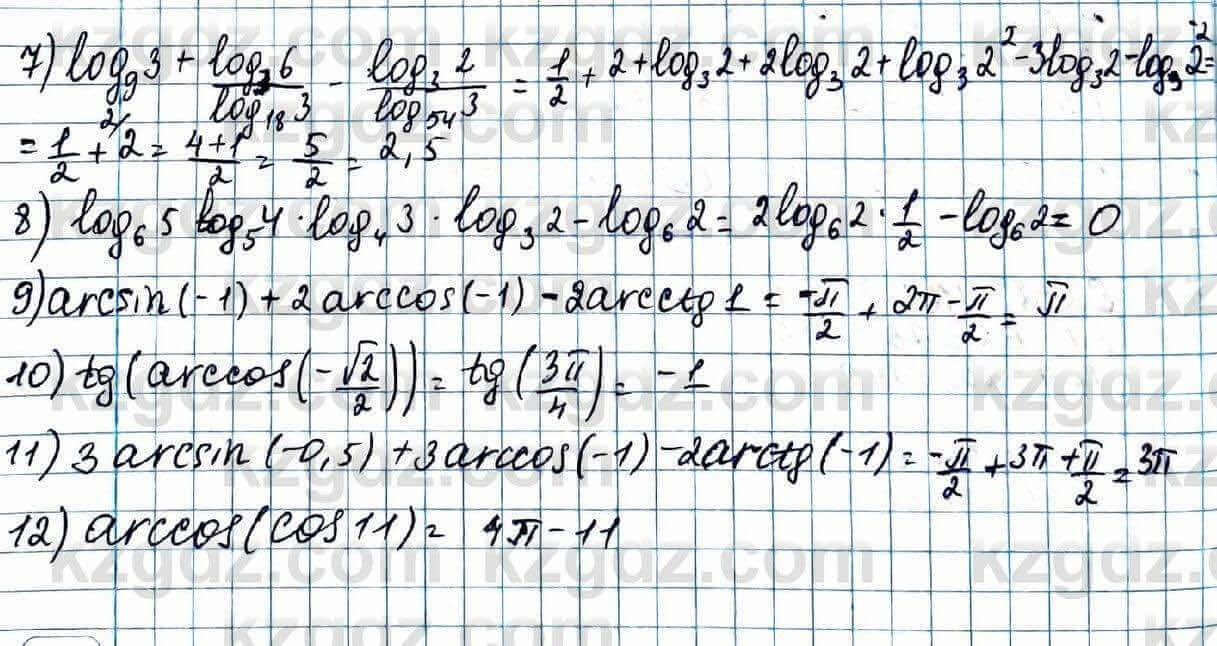 7) log₉3 + log₃6/log₁₈3 - log₃2/log₅₄3 = 1/2 + 2 + log₃2 + 2log₃2 + log₃2² - 3log₃2 - log₃2² =
= 1/2 + 2 = (4+1)/2 = 5/2 = 2,5
8) log₆5 log₅4 · log₄3 · log₃2 - log₆2 = 2log₆2 · 1/2 - log₆2 = 0
9) arcsin(-1) + 2arccos(-1) - 2arcctg1 = -π/2 + 2π - π/2 = π
10) tg(arccos(-√2/2)) = tg(3π/4) = -1
11) 3arcsin(-0,5) + 3arccos(-1) - 2arctg(-1) = -π/2 + 3π + π/2 = 3π
12) arccos(cos11) = 4π - 11
kzgdz.com